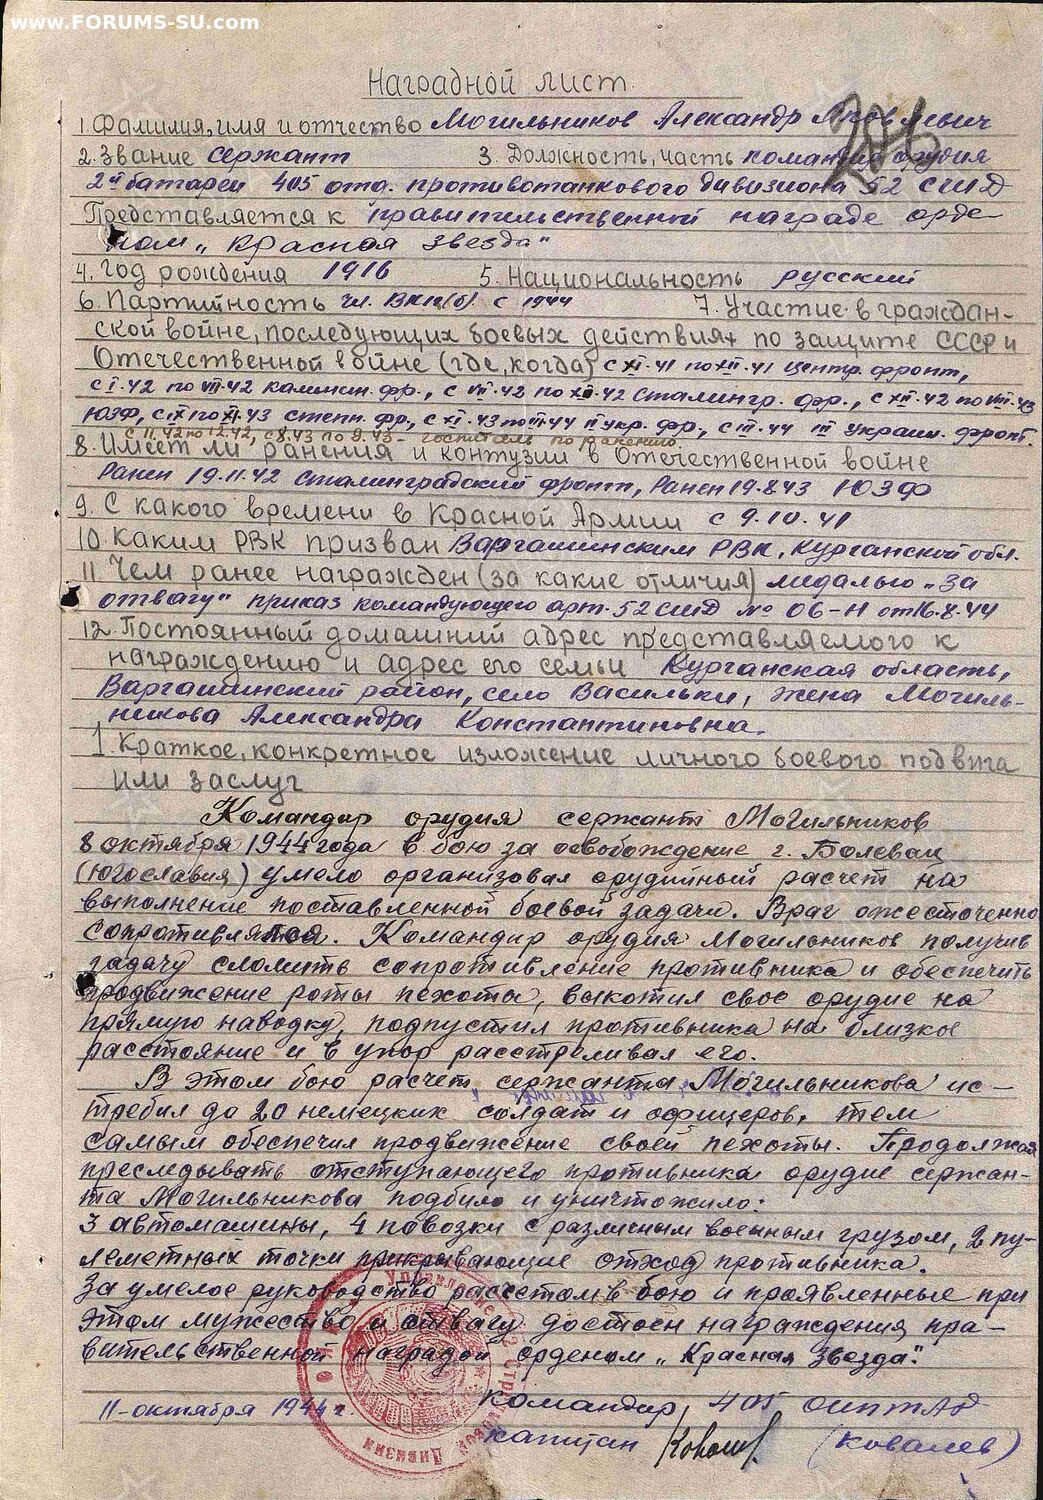 www.FORUMS-SU.com
Наградной лист.
1. Фамилия, имя и отчество Могильников Александр Яковлевич
2. Звание сержант 3. Должность, часть командир орудия
2й батареи 405 отд. противотанкового дивизиона 52 СШД
Представляется к правительственной награде орде-
ном „Красная звезда"
4. Год рождения 1916 5. Национальность русский
6. Партийность чл. ВКП(б). с 1944 7. Участие в граждан-
ской войне, последующих боевых действиях по защите СССР и
Отечественной войне (где, когда) с XI.41 по XII.41 центр. фронт,
с I.42 по VII.42 калинин. фр., с VII.42 по XII.42 Сталингр. фр., с XII.42 по VIII.43
ЮЗФ, с IX по XI.43 степн. фр., с XI.43 по III.44 II укр. фр., с III.44 III Украин. фронт.
с 11.42 по 12.42, с 8.43 по 9.43 - госпиталь по ранению.
8. Имеет ли ранения и контузии в Отечественной войне
Ранен 19.11.42 Сталинградский фронт, Ранен 19.8.43 ЮЗФ
9. С какого времени в Красной Армии с 9.10.41
10. Каким РВК призван Варгашинским РВК, Курганской обл.
11. Чем ранее награжден (за какие отличия) медалью „За
отвагу" приказ командующего арт. 52 СШД № 06-Н от 16.8.44
12. Постоянный домашний адрес представляемого к
награждению и адрес его семьи Курганская область,
Варгашинский район, село Васильки, жена Могиль-
никова Александра Константиновна.
1. Краткое, конкретное изложение личного боевого подвига
или заслуг
Командир орудия сержант Могильников
8 октября 1944 года в бою за освобождение г. Болевац
(Югославия) умело организовал орудийный расчет на
выполнение поставленной боевой задачи. Враг ожесточенно
сопротивлялся. Командир орудия Могильников получив
задачу сломить сопротивление противника и обеспечить
продвижение роты пехоты, выкотил свое орудие на
прямую наводку, подпустил противника на близкое
расстояние и в упор расстреливал его.
В этом бою расчет сержанта Могильникова ис-
требил до 20 немецких солдат и офицеров, тем
самым обеспечил продвижение своей пехоты. Продолжая
преследывать отступающего противника орудие сержан-
та Могильникова подбило и уничтожило:
3 автомашины, 4 повозки с различным военным грузом, 2 пу-
леметных точки прикрывающие отход противника.
За умелое руководство рассчетом в бою и проявленные при
этом мужество и отвагу достоен награждения пра-
вительственной наградой орденом „Красная Звезда".
11-октября 1944 г. Командир 405 ОИПТАД
капитан (Ковалев)